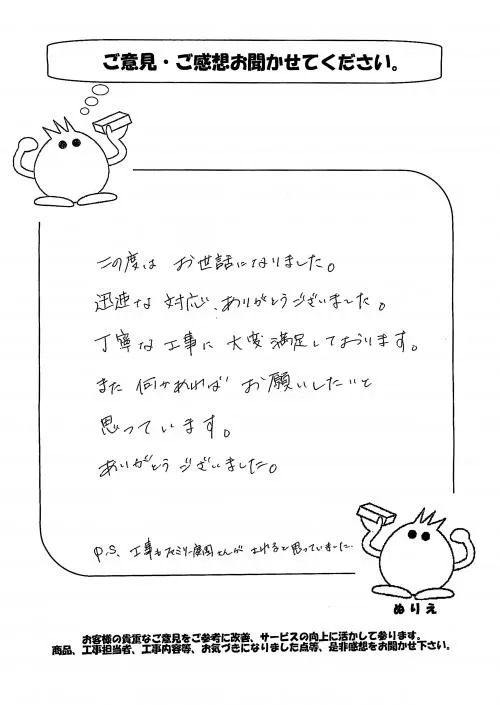 ご意見・ご感想お聞かせてください。
この度は お世話になりました。
迅速な 対応、ありがとうございました。
丁寧な工事に 大変満足しております。
また 何かあれば お願いしたいと
思っています。
ありがとうございました。
P.S、工事も さんが と思っていました…
ぬりえ
お客様の貴重なご意見をご参考に改善、サービスの向上に活かして参ります。
商品、工事担当者、工事内容等、お気づきになりました点等、是非感想をお聞かせ下さい。